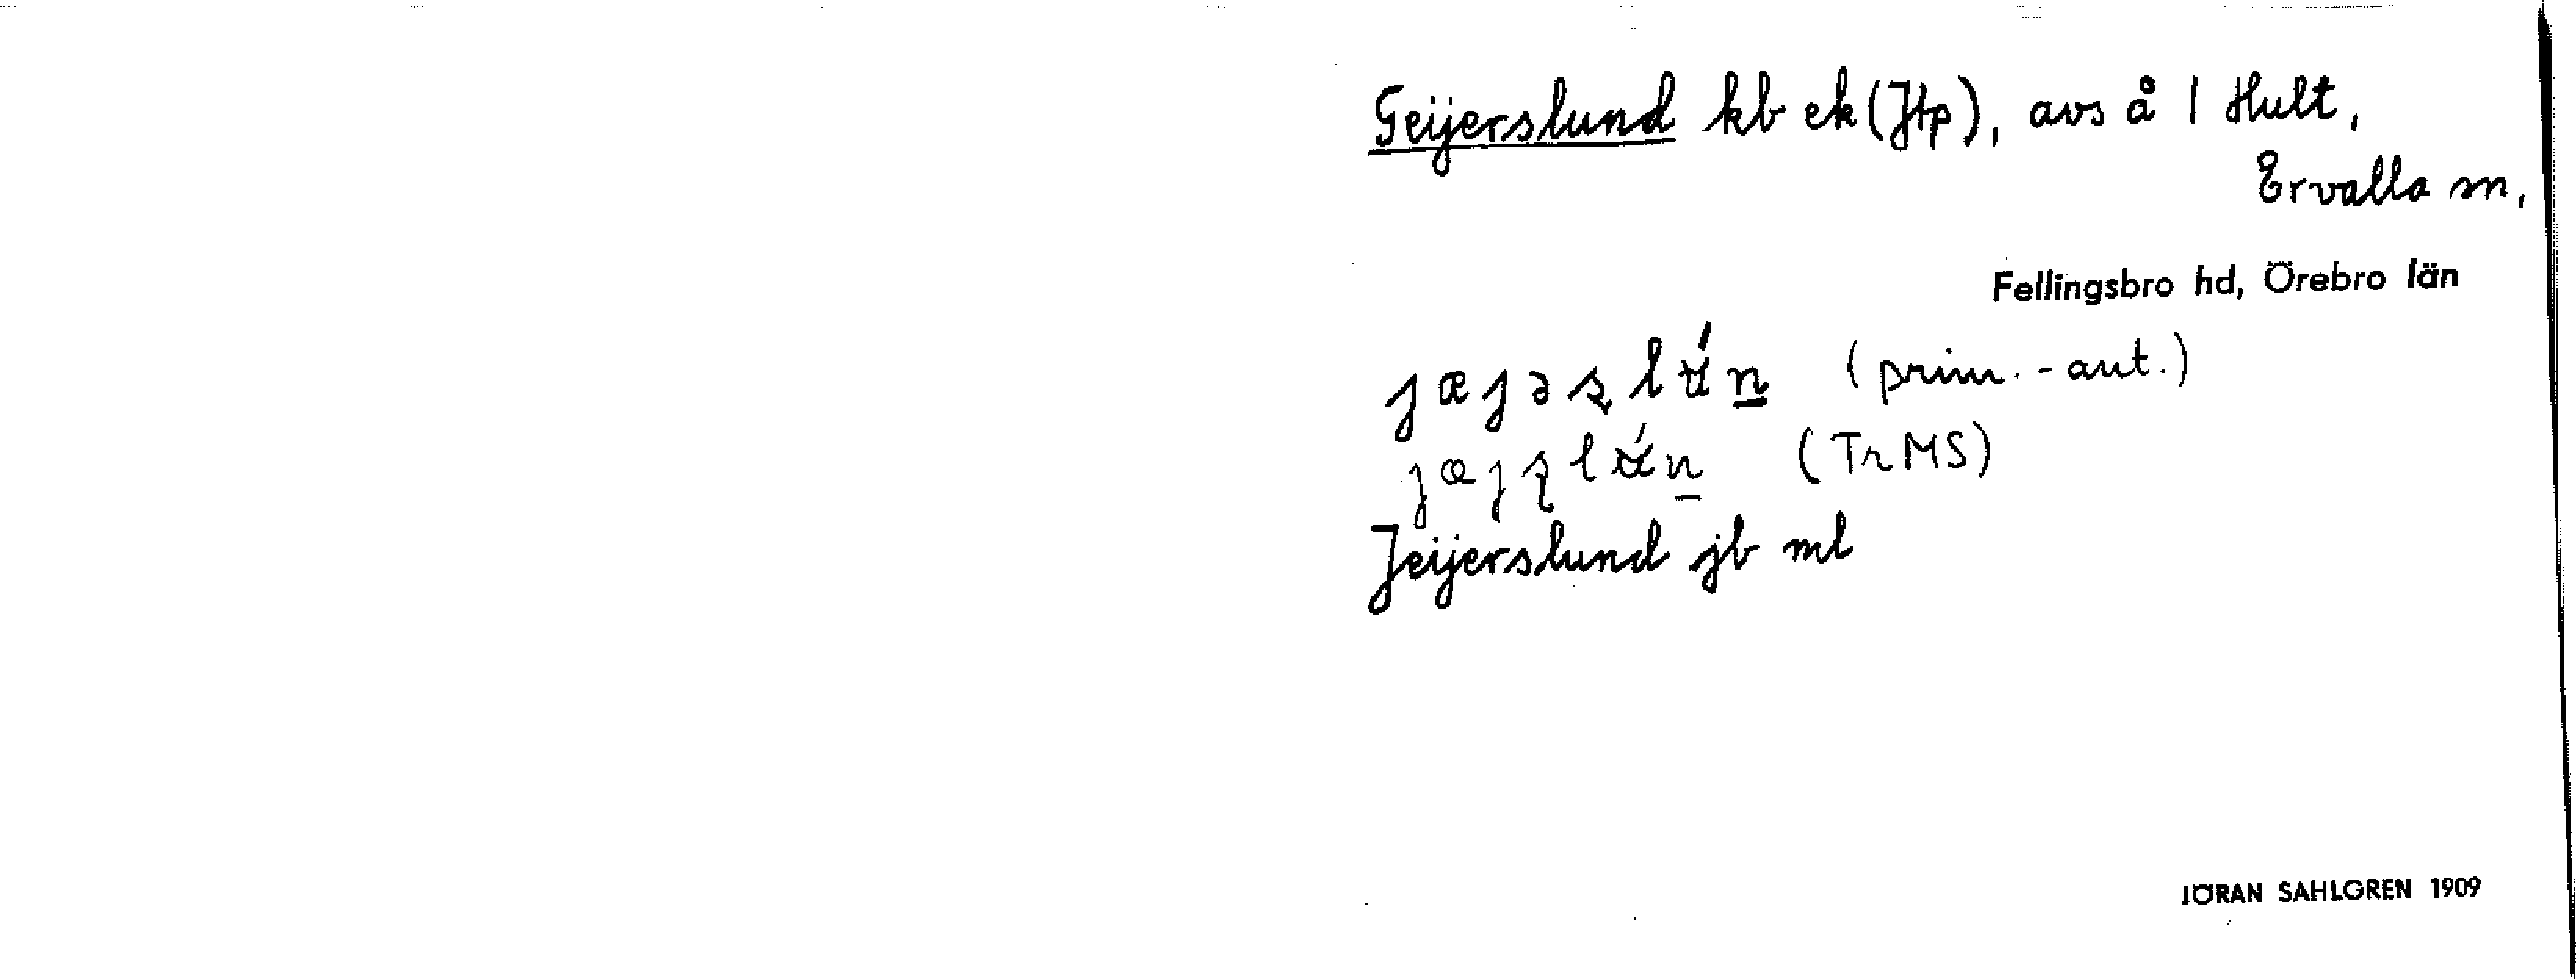 Geijerslund kb ek (Jtp), avs å 1 Hult,
Ervalla sn,
Fellingsbro hd, Örebro län
(prim.-aut.)
(Tr MS)
Jeijerslund jb ml
JÖRAN SAHLGREN 1909